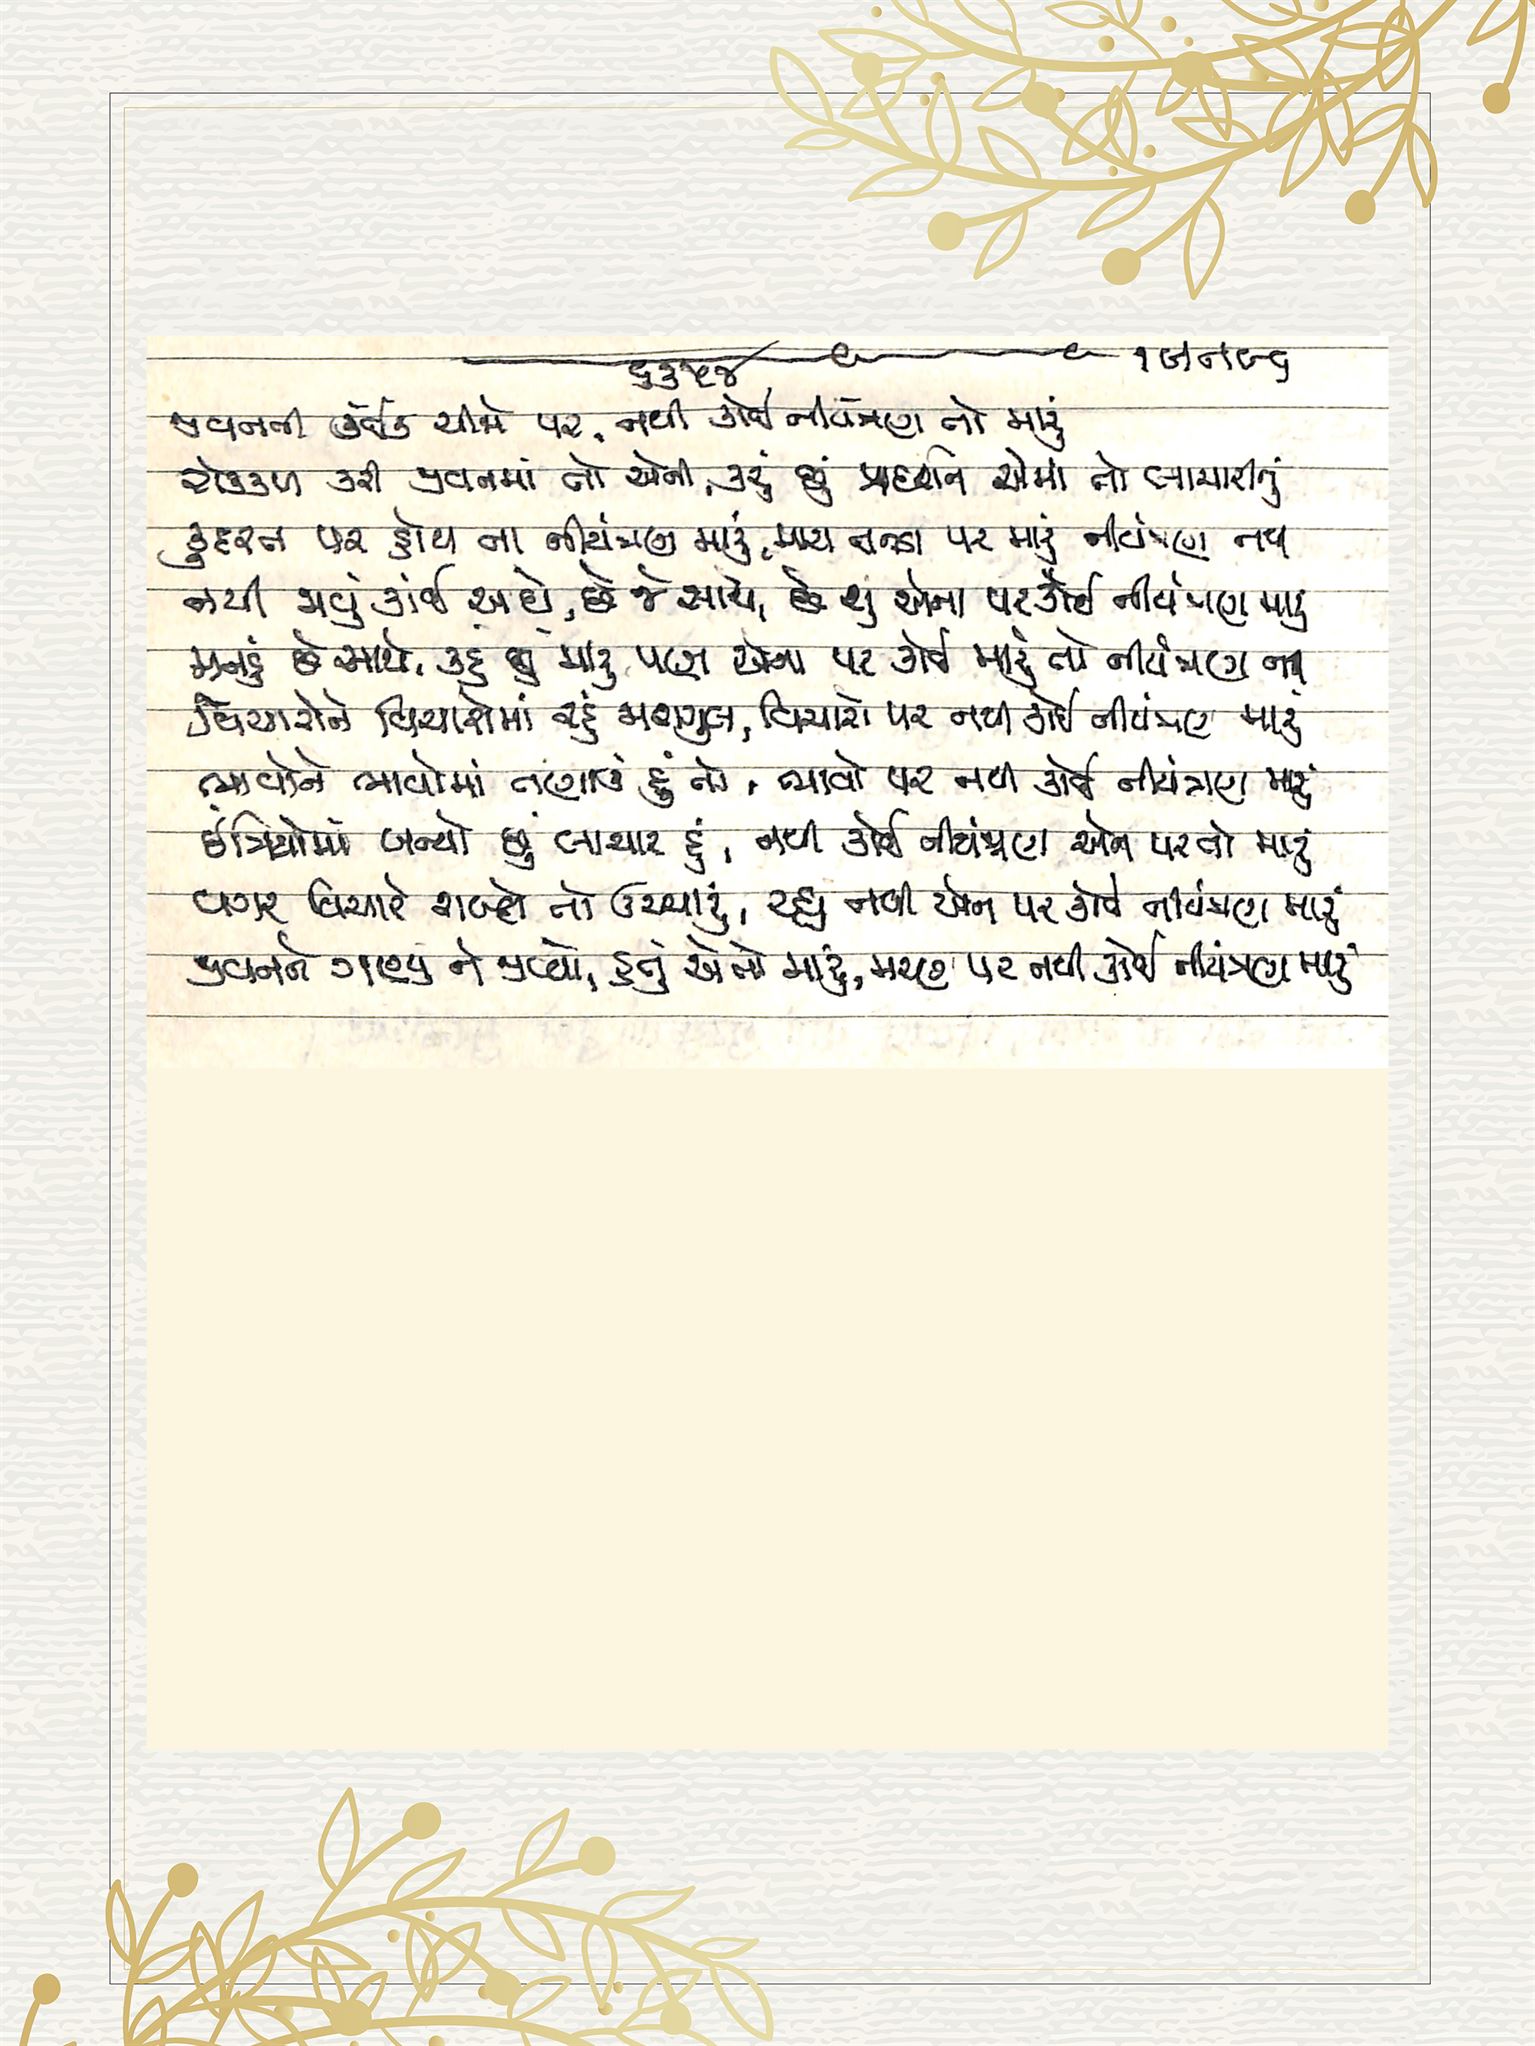 ૧ જાન ૯૬
૬૩૫૪
જીવનની કંઈક ચીજો પર, નથી કોઈ નીયંત્રણ તો મારું
રોકકળ કરી જીવનમાં તો એની, કરું છું પ્રદર્શન એમાં તો લાચારીનું
કુદરત પર હોય ના નીયંત્રણ મારું, મારા તનડા પર મારું નીયંત્રણ નથી
નથી જાવું કાંઈ સાથે, છે જે સાથે, છે શું એના પર કોઈ નીયંત્રણ મારું
મનડું છે સાથે, કહું છું મારું પણ એના પર કોઈ મારું તો નીયંત્રણ નથી
વિચારોને વિચારોમાં રહું મશગુલ, વિચારો પર નથી કોઈ નીયંત્રણ મારું
ભાવોને ભાવોમાં તણાઉં હું તો, ભાવો પર નથી કોઈ નીયંત્રણ મારું
ઈંદ્રિયોમાં બન્યો છું લાચાર હું, નથી કોઈ નીયંત્રણ એના પર તો મારું
વગર વિચારે શબ્દો તો ઉચ્ચારું, રહ્યું નથી એના પર કોઈ નીયંત્રણ મારું
જીવનને જીવ્યો, હતું એ તો મારું, મરણ પર નથી કોઈ નીયંત્રણ મારું